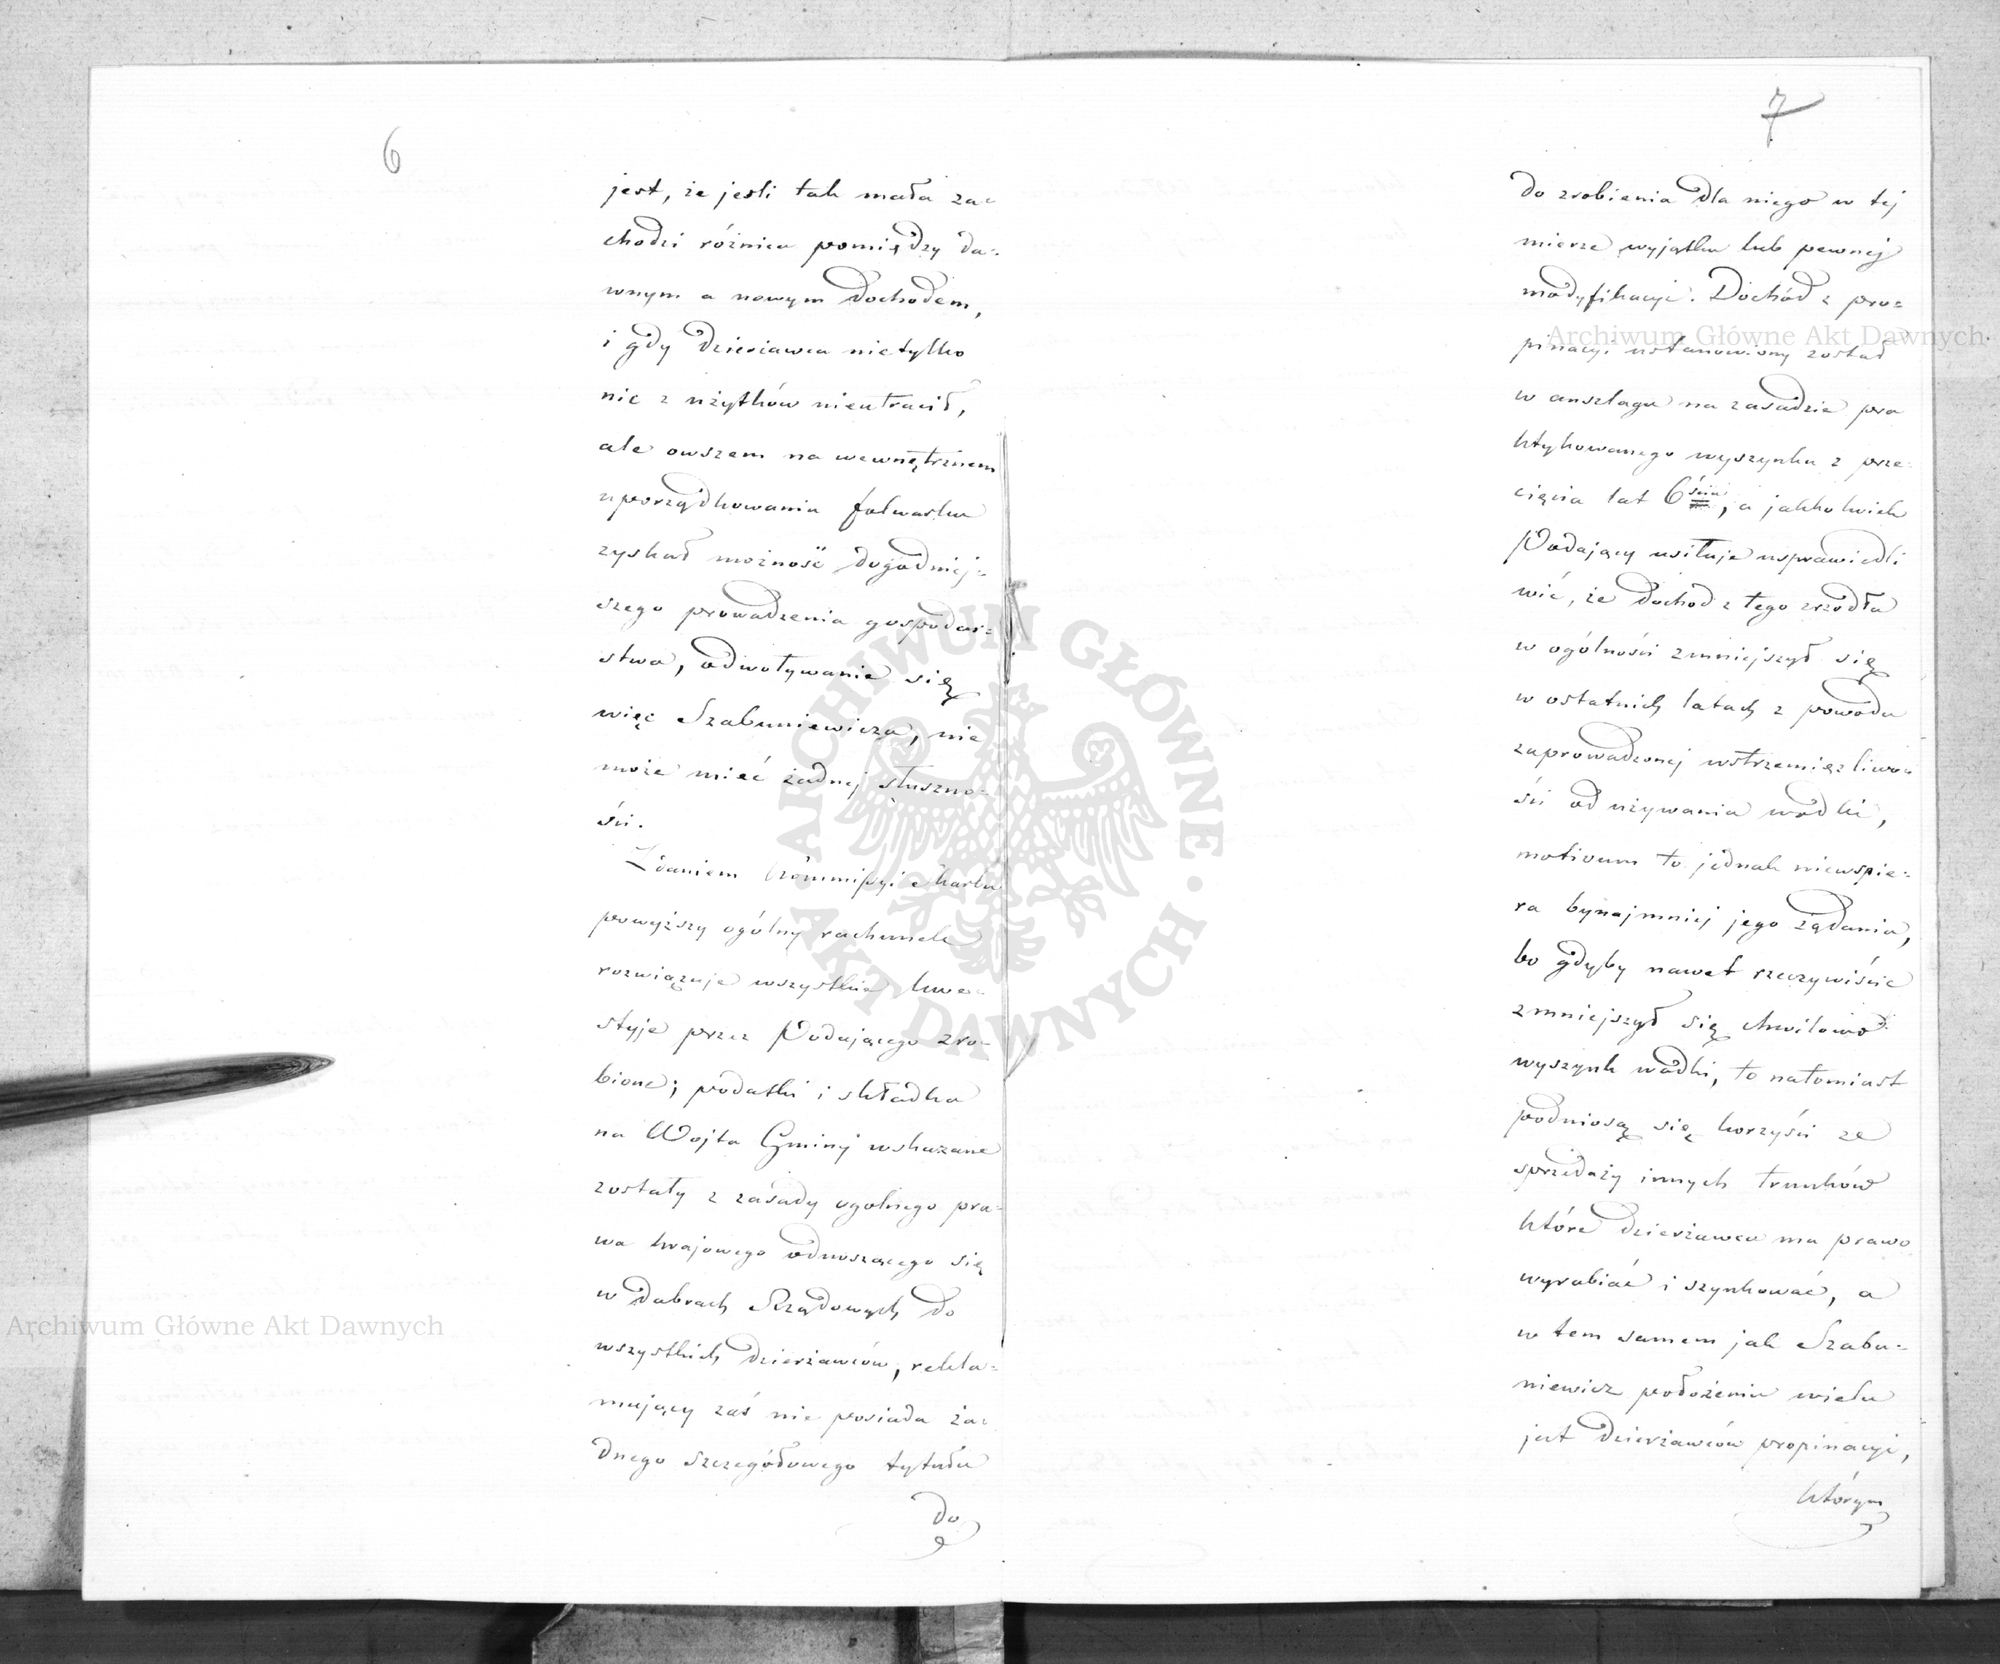 6
jest, że jeśli tak mała za-
chodzi różnica pomiędzy da-
wnym a nowym dochodem,
i gdy dzierżawca nietylko
nic z użytków nieutracił,
ale owszem na wewnętrznem
uporządkowaniu folwarku
zyskał możność dogodniej-
szego prowadzenia gospodar-
stwa, odwoływanie się
więc Szabuniewicza, nie
może mieć żadnej słuszno-
ści.
Zdaniem Kommissyi Skarbu
powyższy ogólny rachunek
rozwiązuje wszystkie kwe-
styje przez Podającego zro-
bione; podatki i składka
na Wojta Gminy wskazane
zostały z zasady ogolnego pra-
wa krajowego odnoszącego się
w dobrach Rządowych do
wszystkich dzierżawców, rekla-
mujący zaś nie posiada ża-
dnego szczegółowego tytułu
do
7
do zrobienia dla niego w tej
mierze wyjątku lub pewnej
modyfikacyi. Dochód z pro-
pinacyi ustanowiony został
w anszlagu na zasadzie pra
ktykowanego wyszynku z prze-
cięcia lat 6ściu, a jakkolwiek
Podający usiłuje usprawiedli
wić, że dochod z tego zrzódła
w ogólności zmniejszył się
w ostatnich latach z powodu
zaprowadzonej wstrzemięzliwo-
ści od używania wódki,
motivum to jednak niewspie-
ra bynajmniej jego żądania,
bo gdyby nawet rzeczywiście
zmniejszył się chwilowo
wyszynk wódki, to natomiast
podniosą się korzyści ze
sprzedaży innych trunków
które dzierżawca ma prawo
wyrabiać i szynkować, a
w tem samem jak Szabu-
niewicz położeniu wielu
jest dzierżawców propinacyi,
którym
Archiwum Główne Akt Dawnych
Archiwum Główne Akt Dawnych
ARCHIWUM GŁÓWNE · AKT DAWNYCH ·